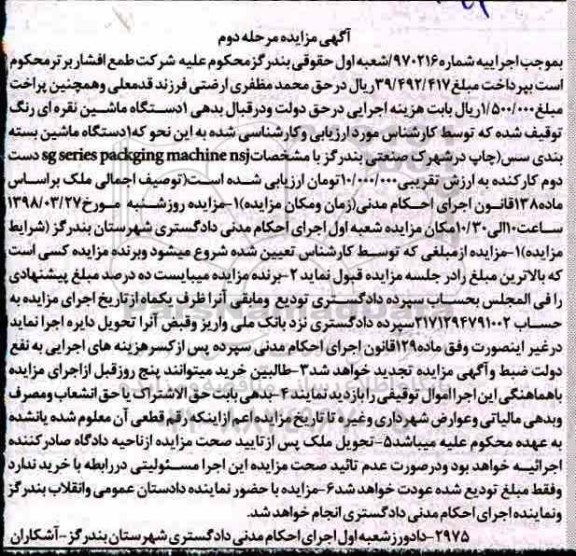 آگهی مزایده مرحله دوم
بموجب اجراییه شماره ۹۷۰۲۱۶/شعبه اول حقوقی بندرگز محکوم علیه شرکت طمع افشار برتر محکوم
است بپرداخت مبلغ ۳۹/۴۹۲/۴۱۷ریال در حق محمد مظفری ارضتی فرزند قدمعلی وهمچنین پراخت
مبلغ ۱/۵۰۰/۰۰۰ریال بابت هزینه اجرایی در حق دولت ودرقبال بدهی ۱دستگاه ماشین نقره ای رنگ
توقیف شده که توسط کارشناس مورد ارزیابی وکارشناسی شده به این نحو که۱دستگاه ماشین بسته
بندی سس(چاپ درشهرک صنعتی بندرگز با مشخصاتsg series packging machine nsj دست
دوم کارکنده به ارزش تقریبی۱۰/۰۰۰/۰۰۰تومان ارزیابی شده است(توصیف اجمالی ملک براساس
ماده۱۳۸قانون اجرای احکام مدنی(زمان ومکان مزایده)۱-مزایده روزشنبه مورخ۱۳۹۸/۰۳/۲۷
ساعت۱۰الی۱۰/۳۰مکان مزایده شعبه اول اجرای احکام مدنی دادگستری شهرستان بندرگز (شرایط
مزایده)۱-مزایده ازمبلغی که توسط کارشناس تعیین شده شروع میشود وبرنده مزایده کسی است
که بالاترین مبلغ رادر جلسه مزایده قبول نماید ۲-برنده مزایده میبایست ده درصد مبلغ پیشنهادی
را فی المجلس بحساب سپرده دادگستری تودیع ومابقی آنرا ظرف یکماه ازتاریخ اجرای مزایده به
حساب ۲۱۷۱۲۹۴۷۹۱۰۰۲سپرده دادگستری نزد بانک ملی واریز وقبض آنرا تحویل دایره اجرا نماید
درغیر اینصورت وفق ماده۱۲۹قانون اجرای احکام مدنی سپرده پس ازکسرهزینه های اجرایی به نفع
دولت ضبط وآگهی مزایده تجدید خواهد شد۳-طالبین خرید میتوانند پنج روزقبل ازاجرای مزایده
باهماهنگی این اجرا اموال توقیفی را بازدید نمایند ۴-بدهی بابت حق الاشتراک یا حق انشعاب ومصرف
وبدهی مالیاتی وعوارض شهرداری وغیره تا تاریخ مزایده اعم ازاینکه رقم قطعی آن معلوم شده یانشده
به عهده محکوم علیه میباشد۵-تحویل ملک پس ازتایید صحت مزایده ازناحیه دادگاه صادرکننده
اجرائیه خواهد بود ودرصورت عدم تائید صحت مزایده این اجرا مسئولیتی دررابطه با خرید ندارد
وفقط مبلغ تودیع شده عودت خواهد شد۶-مزایده با حضور نماینده دادستان عمومی وانقلاب بندرگز
ونماینده اجرای احکام مدنی دادگستری انجام خواهد شد.
۲۹۷۵-دادورز شعبه اول اجرای احکام مدنی دادگستری شهرستان بندرگز-آشکاران